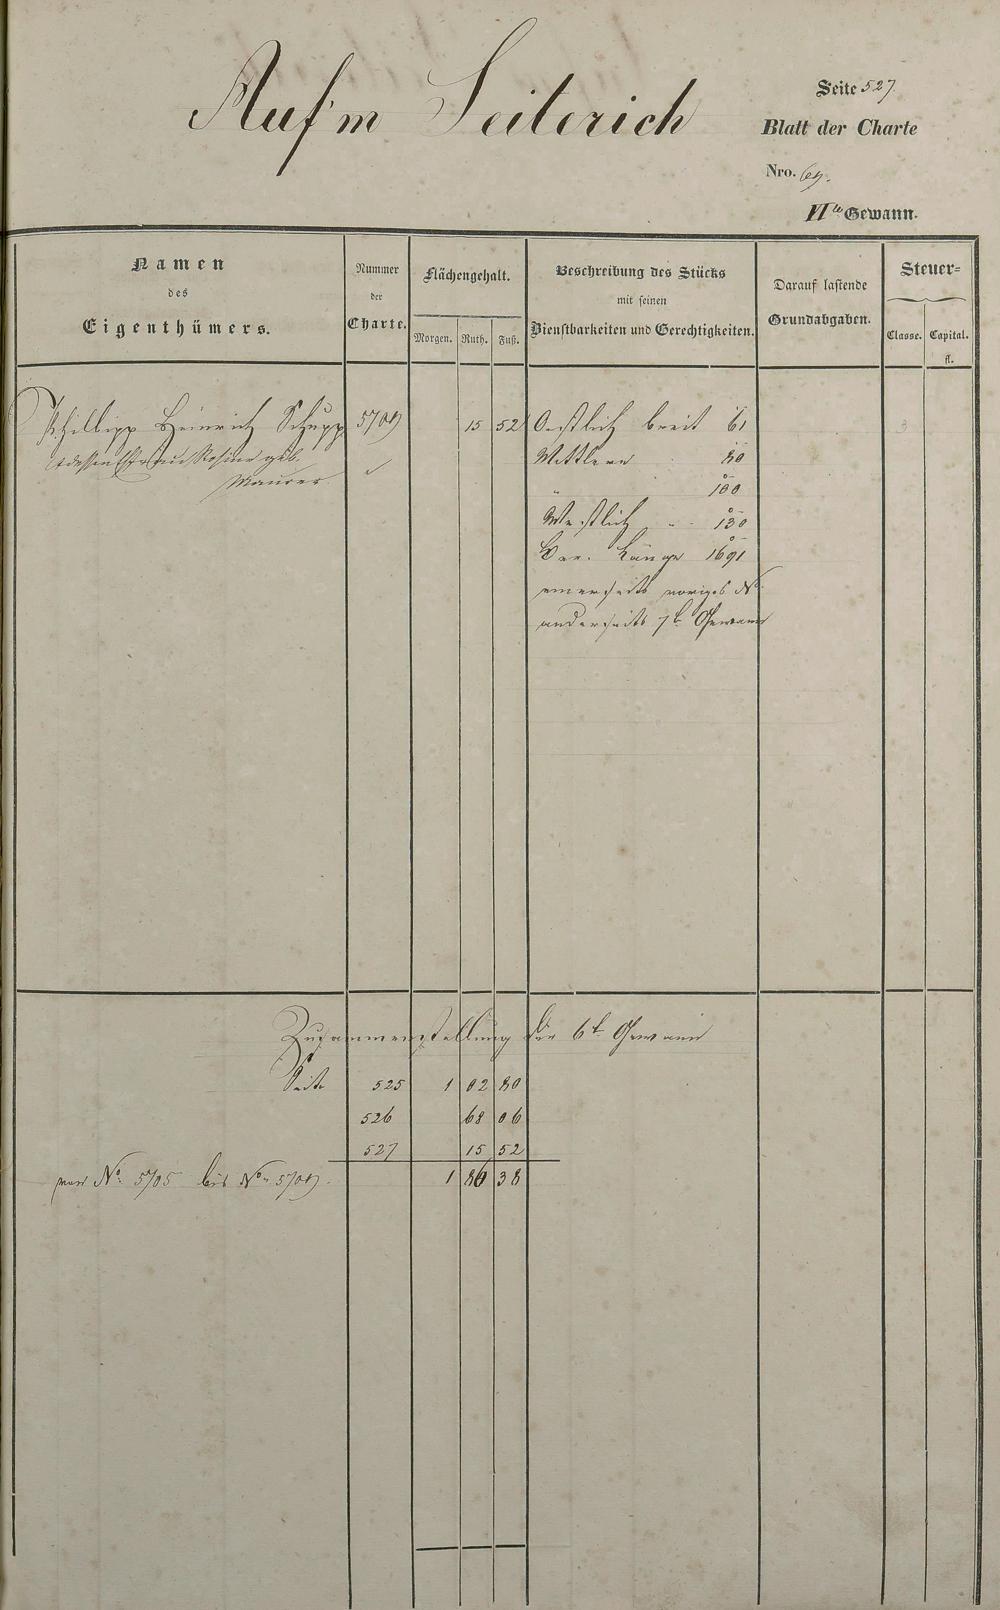 Auf'm Seiterich
Seite 527.
Blatt der Charte
Nro. 69.
VIte Gewann.
Namen
des
Eigenthümers.
Nummer
der
Charte.
Flächengehalt.
Morgen. Ruth. Fuß.
Beschreibung des Stücks
mit seinen
Dienstbarkeiten und Gerechtigkeiten.
Darauf lastende
Grundabgaben.
Steuer=
Classe. Capital.
fl.
Phillipp Heinrich Schupp 5709 15 52 Oestlich breit 61
Rosine geb. Mittlere 80
Maurer
" 100
Westlich " 130
Länge 1691
einerseits voriges No
anderseits 7t Gewann
3
Zusammenstellung der 6t Gewann
Seite 525 1 02 80
526 68 06
527 15 52
von No: 5705 bis No: 5709. 1 86 38